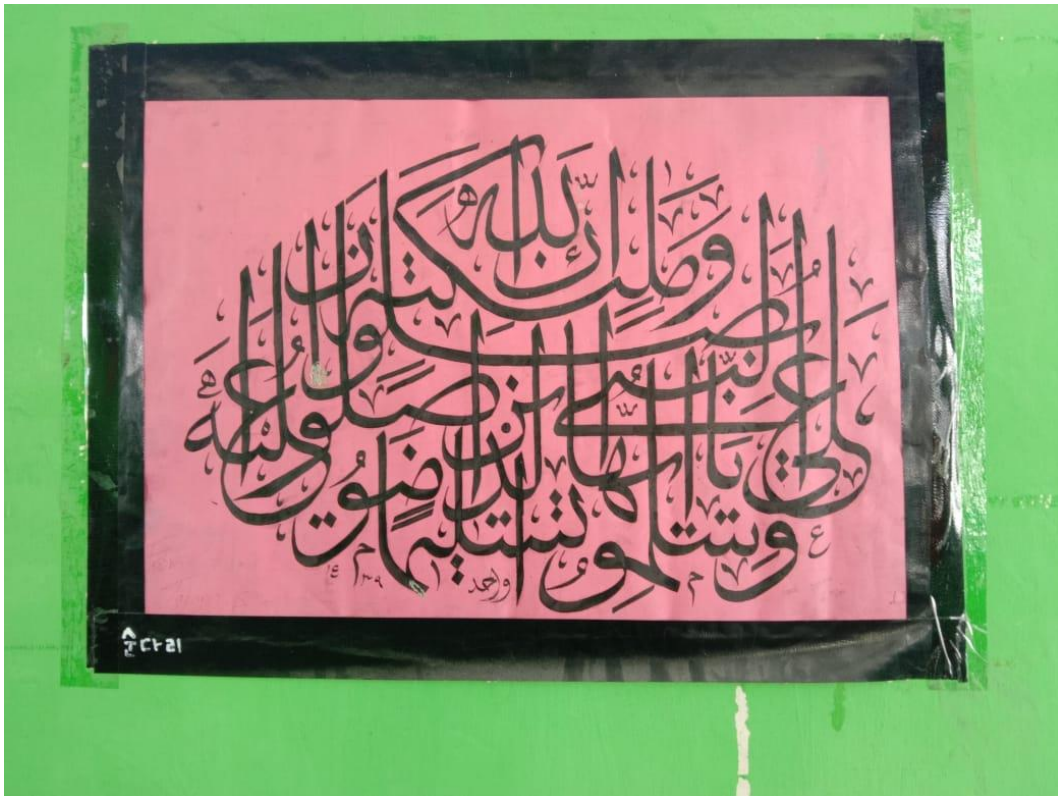 إن الله وملئكته يصلون
على النبي يا أيها الذين آمنوا صلوا عليه
وسلموا تسليما
واحد
순다리